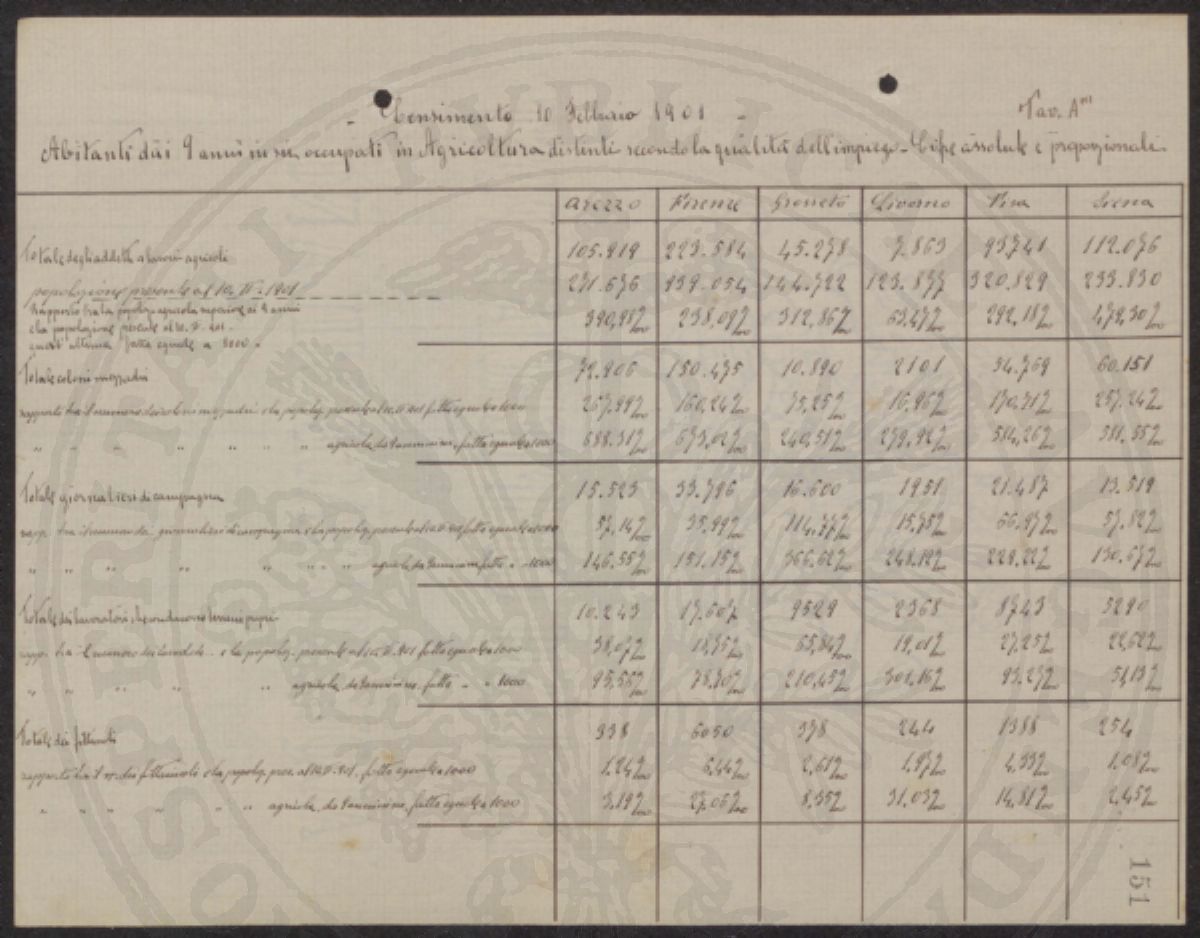 - Censimento 10 Febbraio 1901 -
Tav. A
Abitanti dai 9 anni in su, occupati in Agricoltura distinti secondo la qualità dell'impiego - Cifre assolute e proporzionali
Arezzo Firenze Grosseto Livorno Pisa Siena
Totale degli addetti a lavori agricoli 105.919 223.584 45.278 7.863 93741 112.076
popolazione presente al 10. II. 1901 271.676 939.054 144.722 123.877 320.829 233.830
Rapporto tra la popolaz. agricola superiore ai 9 anni
e la popolazione presente al 10. II. 901. 390,98 238,09 312,86 63,47 292,18 479,30
quest'ultima fatta eguale a 1000.
Totale coloni mezzadri 72.906 150.475 10.890 2101 54.769 60.151
rapporto tra il numero dei coloni mezzadri e la popolaz. presente al 10. II 901 fatta eguale a 1000 267,99 160,24 75,25 16,96 170,71 257,24
" " " " " " " " agricola da 9 anni in su, fatta eguale a 1000 688.31 673,02 240,51 584,26
Totale giornalieri di campagna 15.523 33.796 16.600 1951 21.487 13.519
rapp. tra il numero dei giornalieri di campagna e la popolaz. presente al 10. II 901 fatta eguale a 1000 57,14 35,99 114,77 15,75 66.97 57.82
" " " " " " " " agricola da 9 anni in su fatta " " 1000 146.55 151.15 366.62 248.12 229.22
Totale dei lavoratori che conducono terreni propri 10.243 17.607 9529 2368 8743
rapp. tra il numero dei e la popolaz. presente al 10. II. 901 fatta eguale a 1000 65,84 19,01 27,25 22,62
" " " " " agricola da 9 anni in su. fatta " " 1000 78.70 210,45 301,16 93.27
Totale dei fittanti 338 6050 378 244 1388 254
rapporto tra il n. dei fittaiuoli e la popolaz. pres. al 10. II. 901. fatta eguale a 1000 1,24 6,44 2,61 1,97 4,33 1,08
" " " " " " " agricola da 9 anni in su, fatta eguale a 1000 3,19 27,06 8,35 31,03 14,81
151